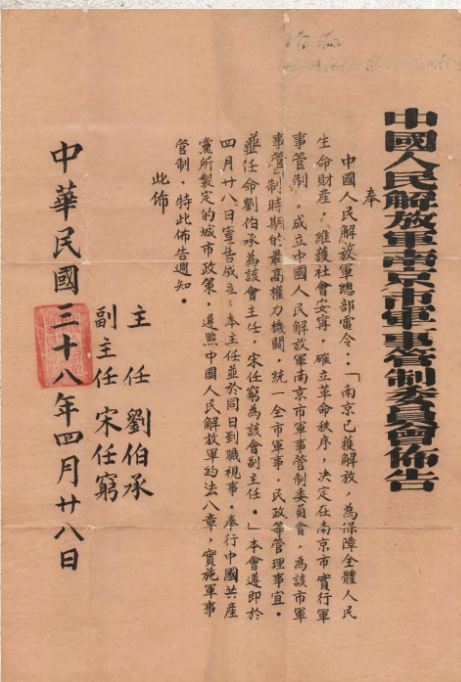 中國人民解放軍南京市軍事管制委員會佈告
奉
中國人民解放軍總部電令：「南京已獲解放，為保障全體人民
生命財產，維護社會安寧，確立革命秩序，決定在南京市實行軍
事管制。成立中國人民解放軍南京市軍事管制委員會，為該市軍
事管制時期的最高權力機關，統一全市軍事，民政等管理事宜。
並任命劉伯承為該會主任，宋任窮為該會副主任。」本會遵即於
四月廿八日宣告成立；本主任並於同日到職視事。奉行中國共產
黨所製定的城市政策，遵照中國人民解放軍約法八章，實施軍事
管制，特此佈告週知。
此佈
主任 劉伯承
副主任 宋任窮
中華民國三十八年四月廿八日